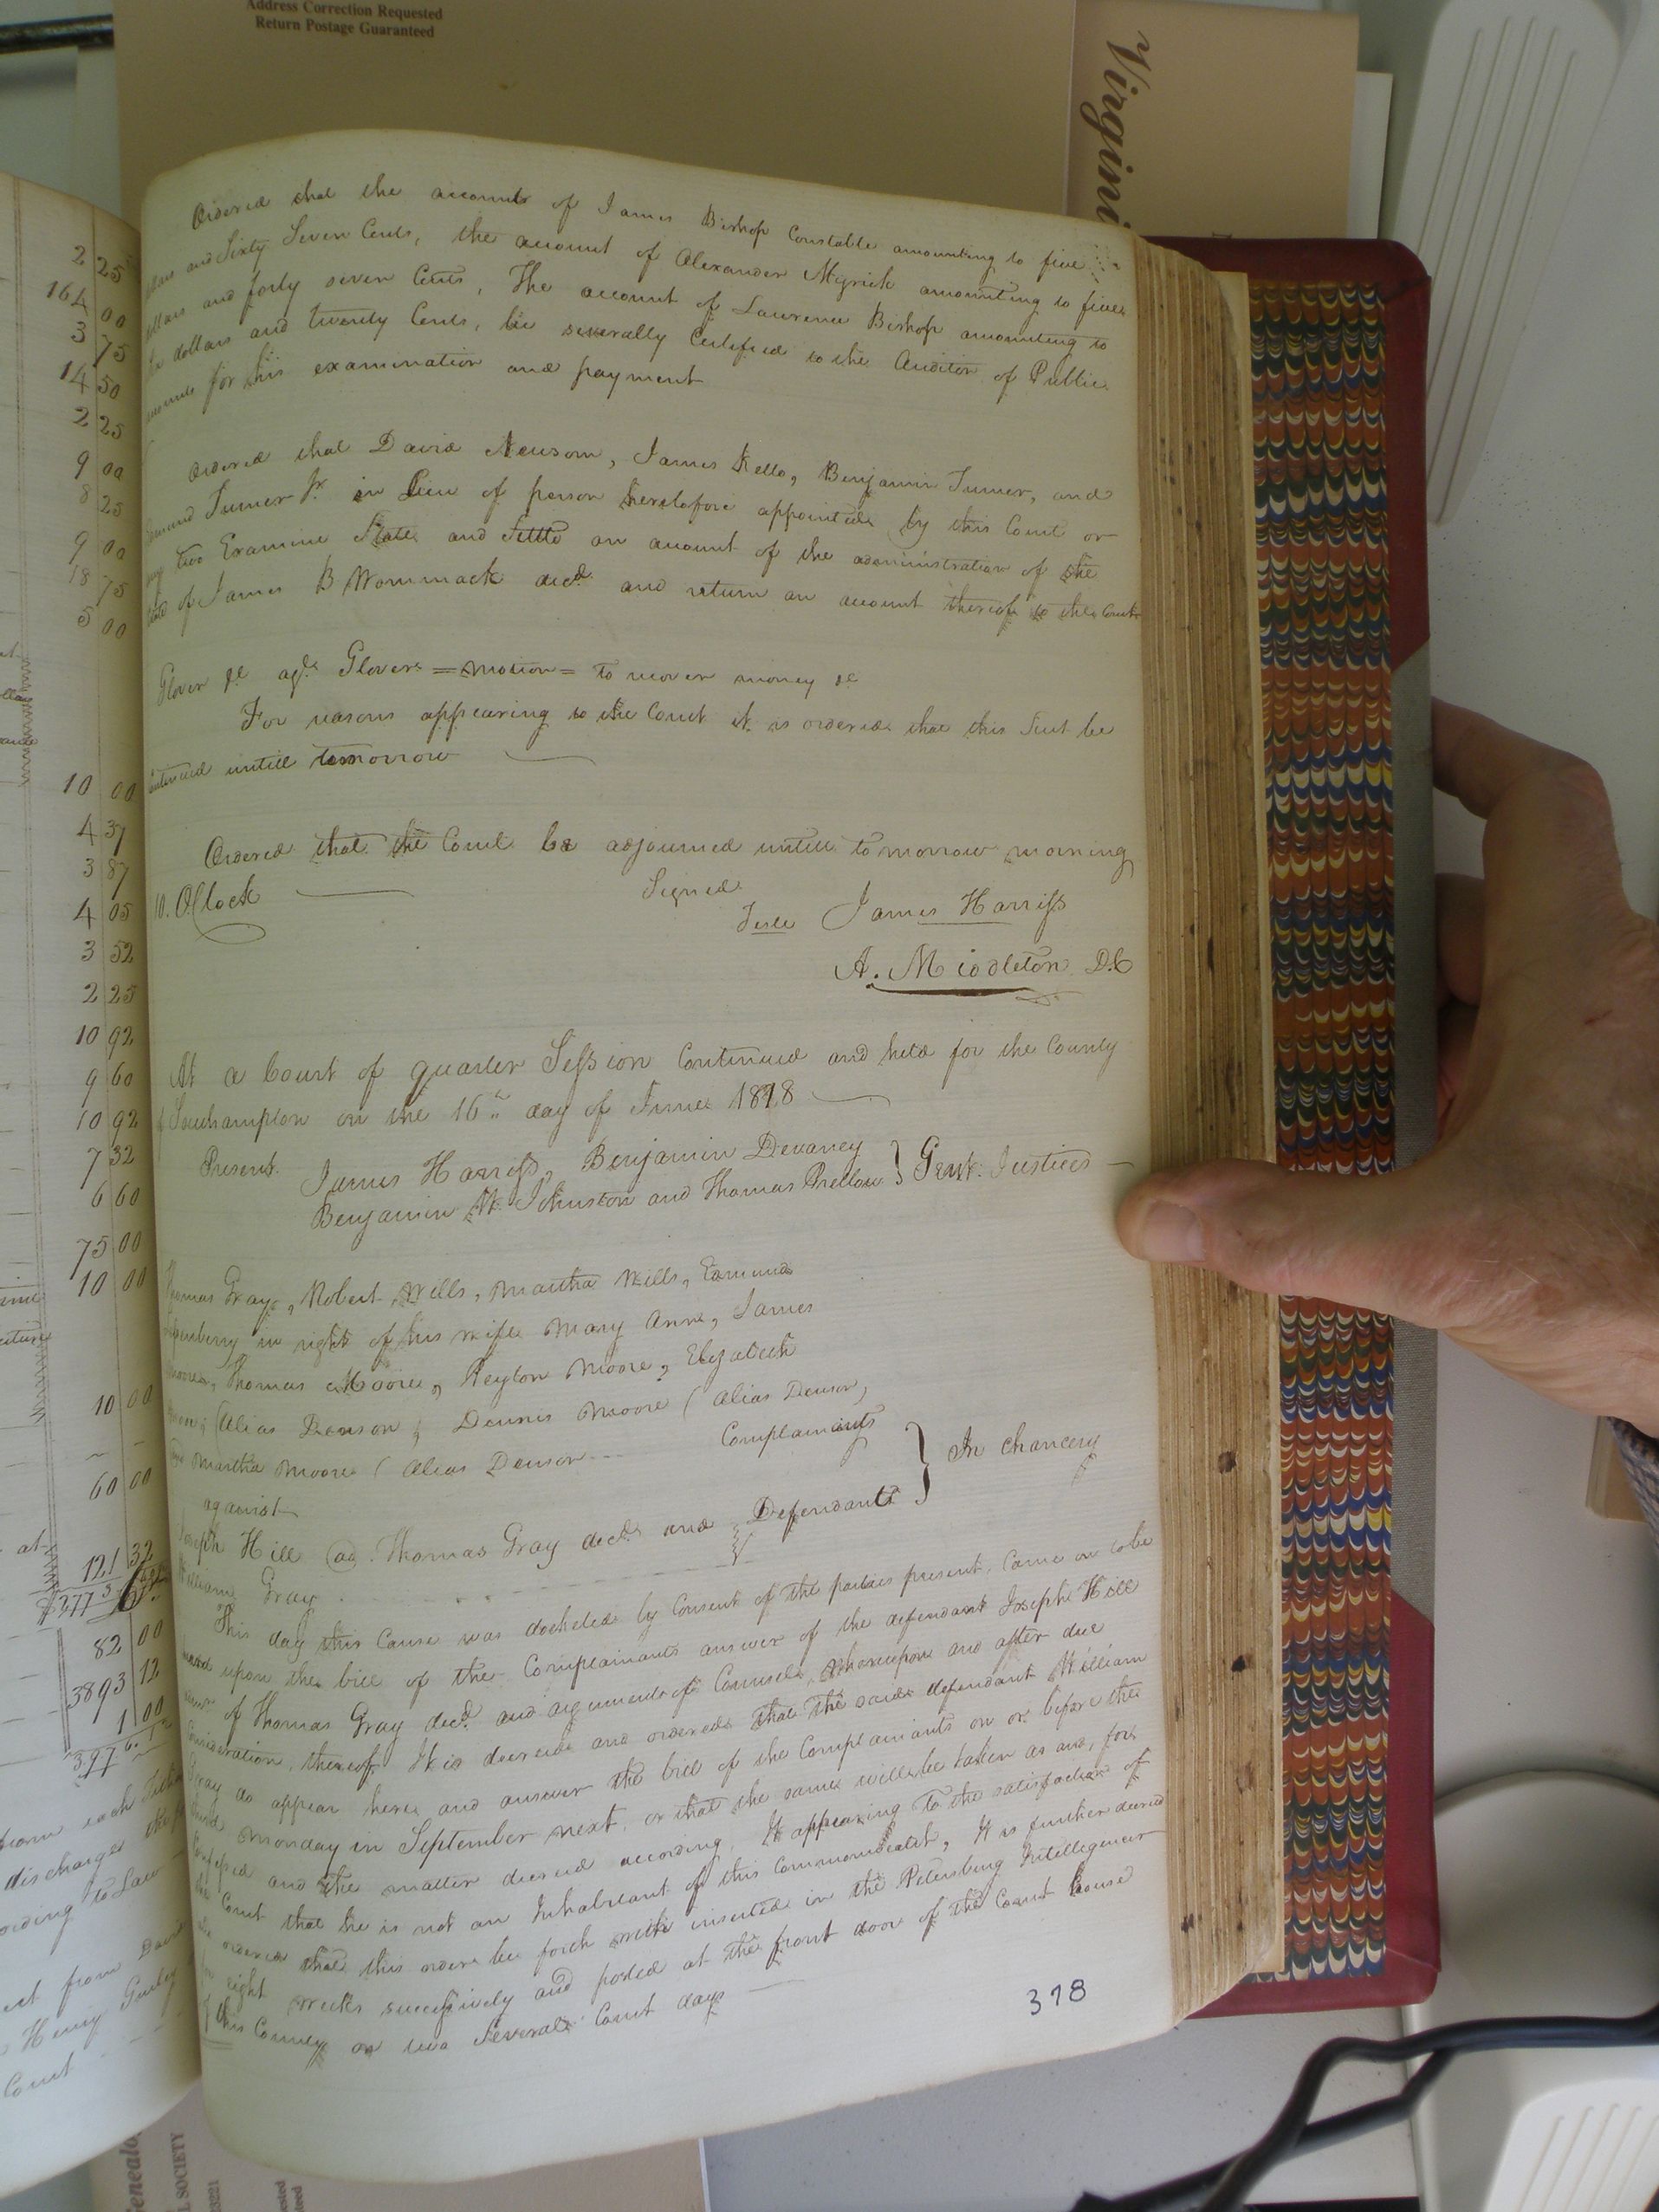 Address Correction Requested
Return Postage Guaranteed
Virgini
Ordered that the accounts of James Bishop Constable amounting to five
dollars and Sixty Seven Cents, the account of Alexander Myrick amounting to five
dollars and forty seven Cents, The account of Lawrence Bishop amounting to
Six dollars and twenty Cents, be severally Certified to the Auditor of Public
accounts for his examination and payment
Ordered that David Newsom, James Kello, Benjamin Turner, and
Edmund Turner Jr. in Lieu of person heretofore appointed by this Court or
any two Examine State and Settle an account of the administration of the
Estate of James B Wommack decd. and return an account thereof to the Court
Glover &c agt. Glover = motion = to recover money &c
For reasons appearing to the Court it is ordered that this Suit be
Continued untill tomorrow
Ordered that the Court be adjourned untill tomorrow morning
10. OClock
Signed
Teste James Harriss
A. Middleton D.C
At a Court of quarter Session Continued and held for the County
of Southampton on the 16th day of June 1818
Present James Harriss, Benjamin Devaney
Benjamin W. Johnston and Thomas Pretlow } Gent. Justices
Thomas Gray, Robert Wills, Martha Wills, Edmund
in right of his wife Mary Ann, James
Moore, Thomas Moore, Peyton Moore, Elizabeth
Moore, (Alias Denson, Dennis Moore (Alias Denson,
and Martha Moore (Alias Denson --- Complainants
against
} In Chancery
Joseph Hill ad. Thomas Gray decd. and Defendants
William Gray
This day this Cause was docketed by Consent of the parties present, Came on to be
heard upon the bill of the Complainants answer of the defendant Joseph Hill
of Thomas Gray decd. and arguments of Counsel, Whereupon and after due
Consideration thereof It is decreed and ordered that the said defendant William
Gray do appear here and answer the bill of the Complainants on or before the
third Monday in September next, or that the same will be taken as and, for
Confessed and the matter decreed according. It appearing to the satisfaction of
the Court that he is not an Inhabitant of this Commonwealth, It is further decreed
and ordered that this order be forth with inserted in the Petersburg Intelligencer
for eight weeks successively and posted at the front door of the Court house
of this County on two Several Court days
378
2 25
164 00
3 75
14 50
2 25
9 00
8 25
9 00
18 75
5 00
10 00
4 37
3 87
4 05
3 52
2 25
10 92
9 60
10 92
7 32
6 60
75 00
10 00
10 00
60 00
at
121 32
82 00
3893 12
1 00
discharges the
ording to Law
est from David
Henry Gurley
Court
Genealo
L SOCIETY
23221